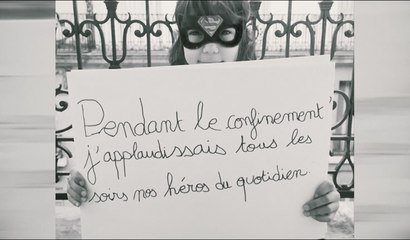 Pendant le confinement
j'applaudissais tous les
soirs nos héros du quotidien.